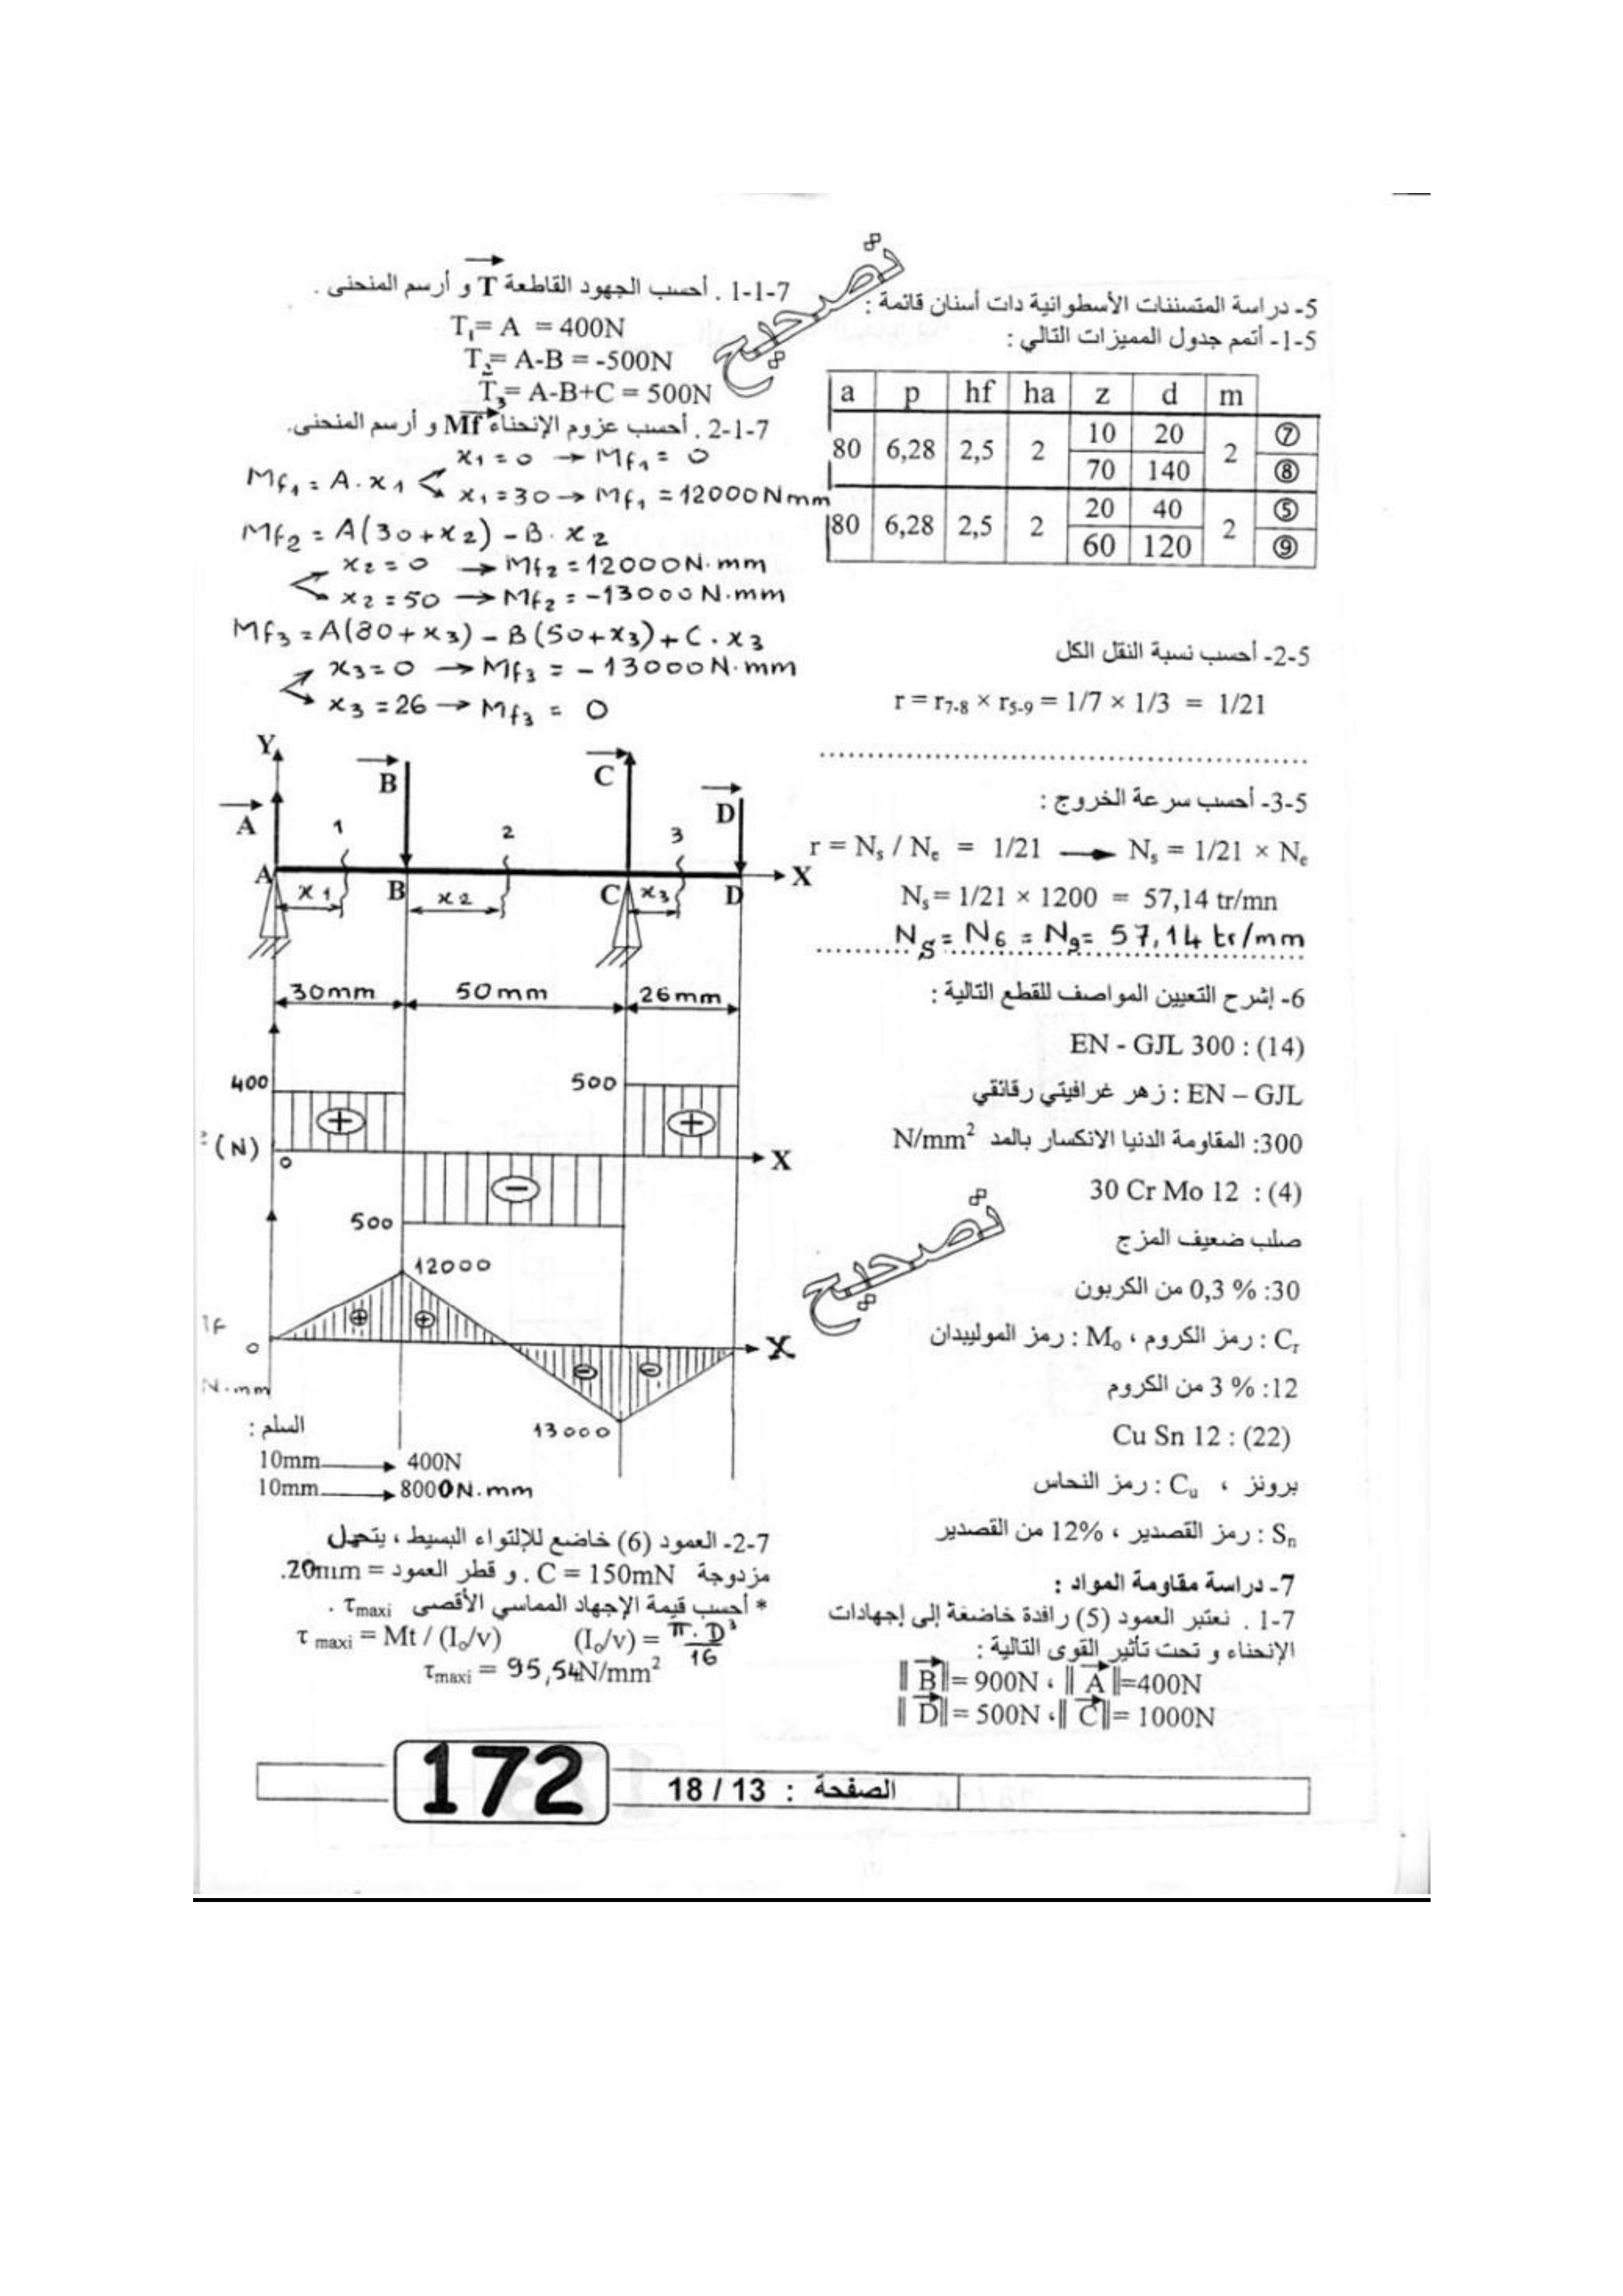 تصحيح
5- دراسة المتسننات الأسطوانية دات أسنان قائمة :
5-1- أتمم جدول المميزات التالي :
a p hf ha z d m
80 6,28 2,5 2 10 20 2 ⑦
70 140 ⑧
80 6,28 2,5 2 20 40 2 ⑤
60 120 ⑨
5-2- أحسب نسبة النقل الكل
r = r7-8 × r5-9 = 1/7 × 1/3 = 1/21
5-3- أحسب سرعة الخروج :
r = Ns / Ne = 1/21 → Ns = 1/21 × Ne
Ns = 1/21 × 1200 = 57,14 tr/mn
Ns = N6 = N9 = 57,14 tr/mm
6- إشرح التعيين المواصف للقطع التالية :
(14) : EN - GJL 300
EN – GJL : زهر غرافيتي رقائقي
300: المقاومة الدنيا الانكسار بالمد N/mm²
(4) : 30 Cr Mo 12
صلب ضعيف المزج
30: % 0,3 من الكربون
Cr : رمز الكروم ، Mo : رمز الموليبدان
12: % 3 من الكروم
(22) : Cu Sn 12
برونز ، Cu : رمز النحاس
Sn : رمز القصدير ، 12% من القصدير
تصحيح
7- دراسة مقاومة المواد :
7-1 . نعتبر العمود (5) رافدة خاضعة إلى إجهادات
الإنحناء و تحت تأثير القوى التالية :
‖A‖=400N ، ‖B‖= 900N
‖C‖= 1000N ، ‖D‖= 500N
7-1-1 . أحسب الجهود القاطعة T و أرسم المنحنى .
T1= A = 400N
T2= A-B = -500N
T3= A-B+C = 500N
7-1-2 . أحسب عزوم الإنحناء Mf و أرسم المنحنى.
x1 = 0 → Mf1 = 0
Mf1 = A . x1
x1 = 30 → Mf1 = 12000 Nmm
Mf2 = A(30+x2) - B . x2
x2 = 0 → Mf2 = 12000N.mm
x2 = 50 → Mf2 = -13000N.mm
Mf3 = A(80+x3) - B(50+x3)+C . x3
x3 = 0 → Mf3 = -13000N.mm
x3 = 26 → Mf3 = 0
Y
B C D
A 1 2 3
A B C D X
x1 x2 x3
30mm 50mm 26mm
400 500
(N) 0 X
500
12000
0 X
N.mm
13000
السلم :
10mm → 400N
10mm → 8000N.mm
7-2- العمود (6) خاضع للإلتواء البسيط ، يتحمل
مزدوجة C = 150mN . و قطر العمود = 20mm.
* أحسب قيمة الإجهاد المماسي الأقصى τmaxi .
τ maxi = Mt / (Io/v) (Io/v) = π.D³/16
τmaxi = 95,54N/mm²
172
الصفحة : 13 / 18